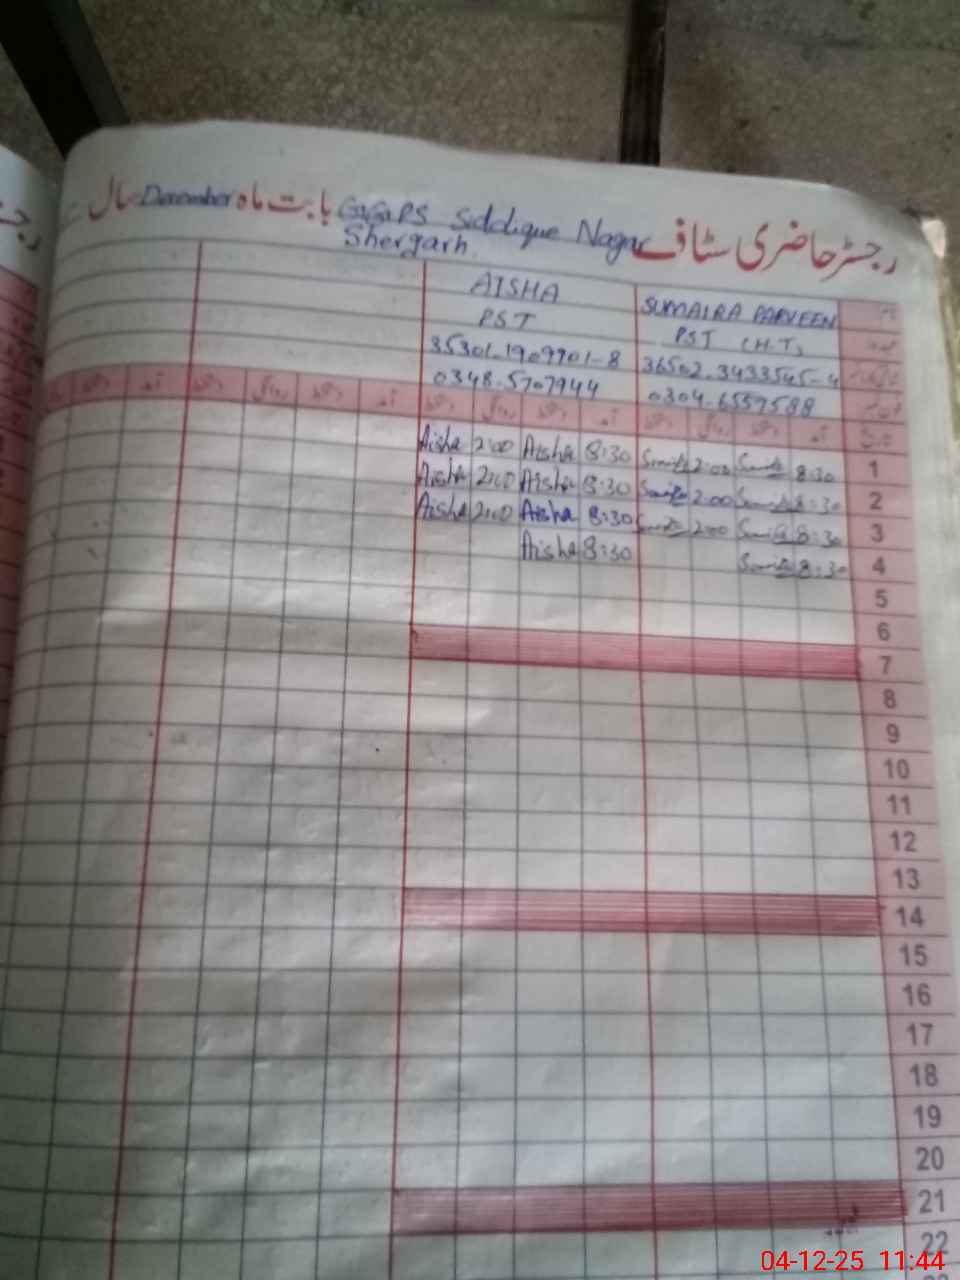 رجسٹر حاضری سٹاف GGPS Siddique Nagar Shergarh بابت ماہ December سال
نام SUMAIRA PARVEEN AISHA
عہدہ PST (H.T) PST
36502-3433545-4 35301-1909901-8
0304-6559588 0348-5707944
تاریخ آمد دستخط روانگی دستخط آمد دستخط روانگی دستخط آمد دستخط روانگی دستخط آمد دستخط
1 8:30 2:00 8:30 Aisha 2:00 Aisha
2 8:30 2:00 8:30 Aisha 2:00 Aisha
3 8:30 2:00 8:30 Aisha 2:00 Aisha
4 8:30 8:30 Aisha
5
6
7
8
9
10
11
12
13
14
15
16
17
18
19
20
21
22
04-12-25 11:44